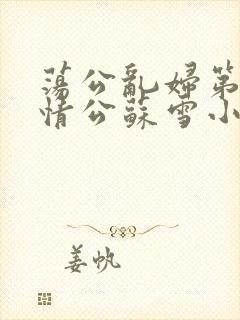 蕩公亂婦第
情公蘇雪小
姜帆